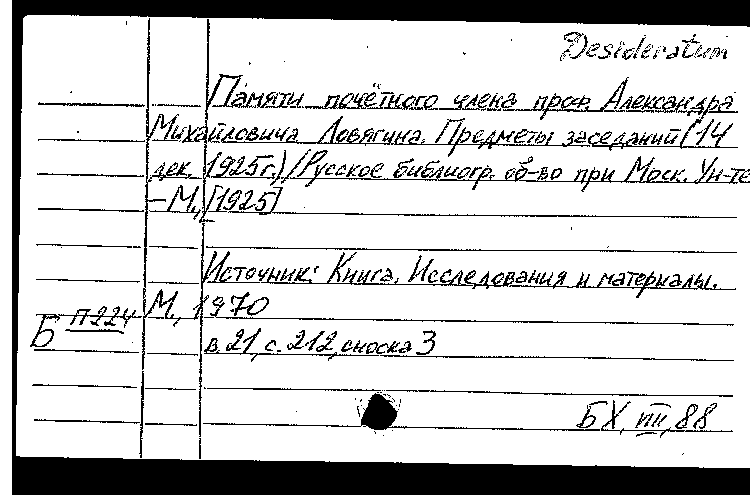 Desideratum
Памяти почётного члена проф. Александра
Михайловича Ловягина. Предметы заседаний (14
дек. 1925г.) / Русское библиогр. об-во при Моск. Ун-те
– М., [1925]
Источник: Книга. Исследования и материалы.
М., 1970
Б П224
в. 21, с. 212, сноска 3
БХ, VIII, 88